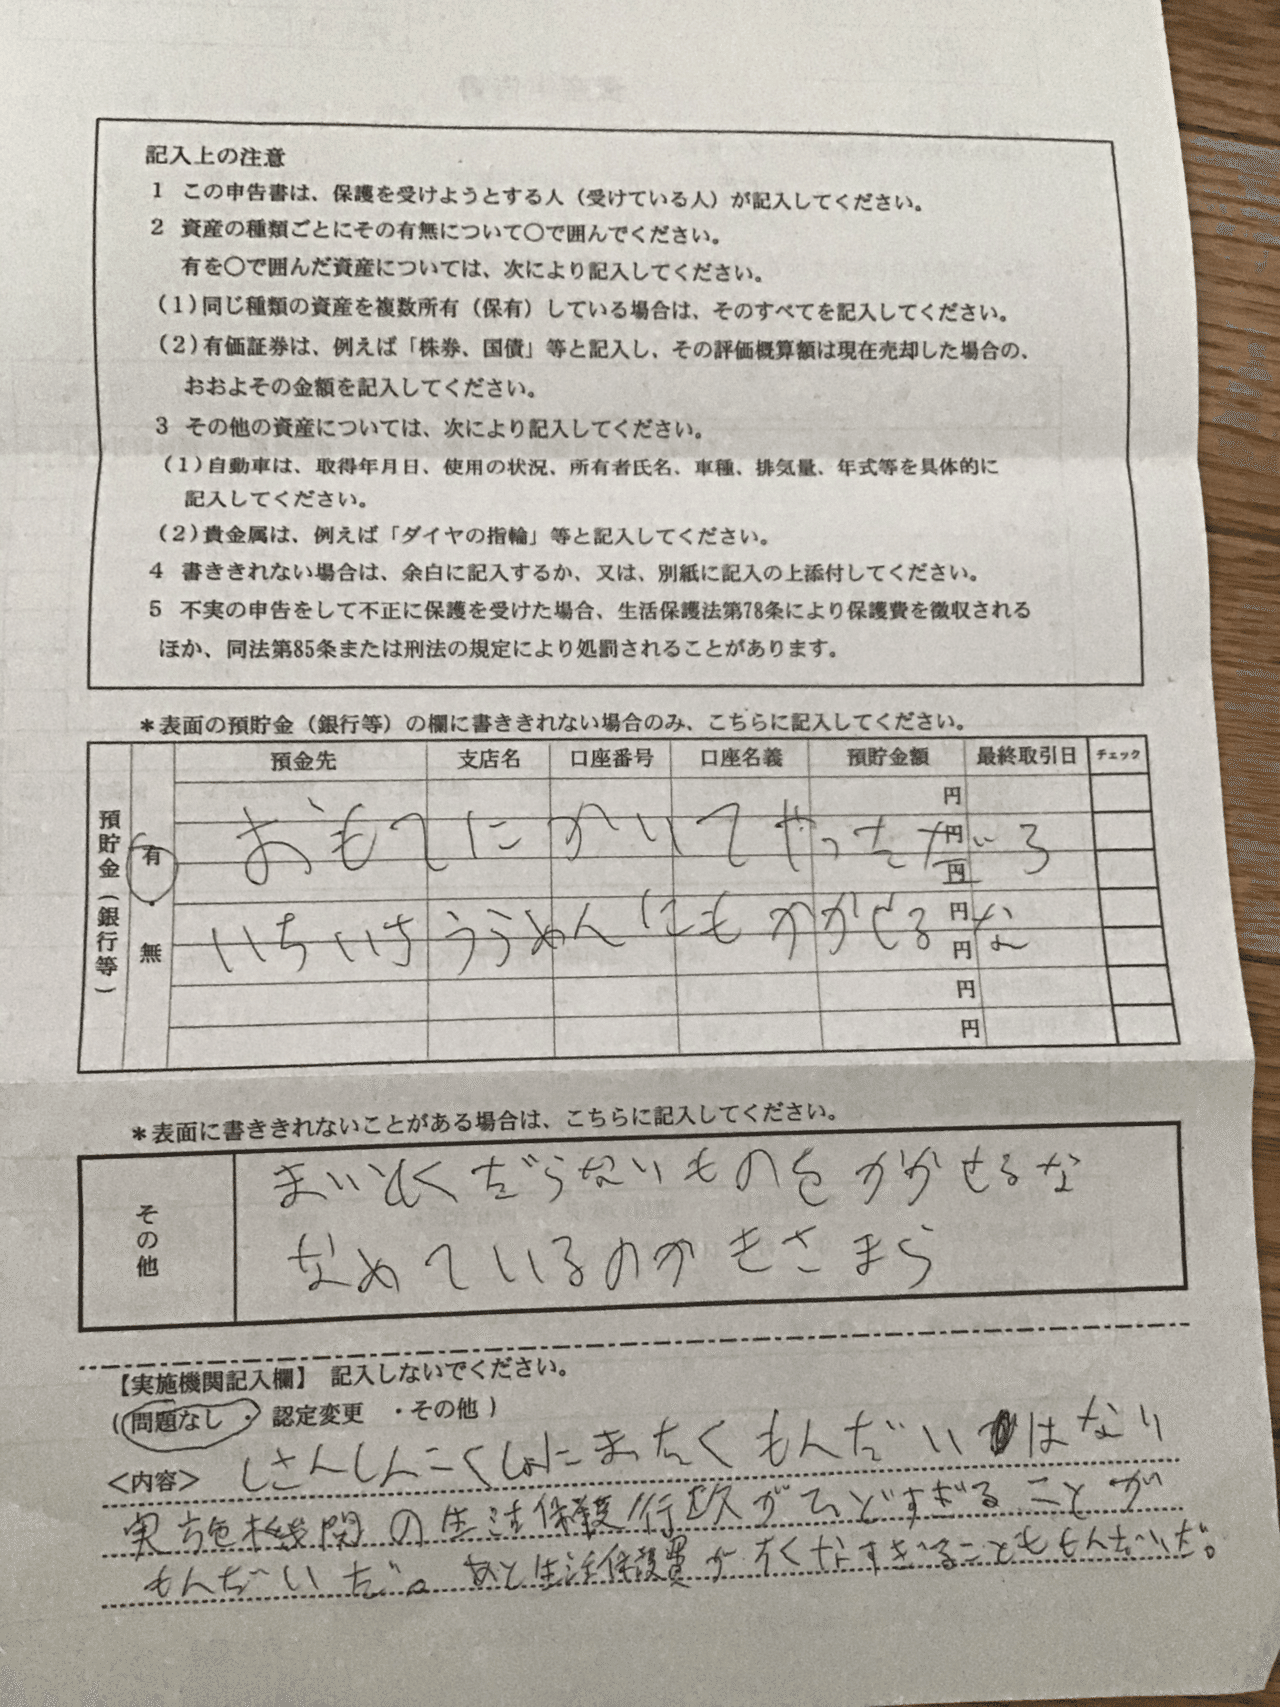 記入上の注意
1 この申告書は、保護を受けようとする人（受けている人）が記入してください。
2 資産の種類ごとにその有無について〇で囲んでください。
有を〇で囲んだ資産については、次により記入してください。
(1)同じ種類の資産を複数所有（保有）している場合は、そのすべてを記入してください。
(2)有価証券は、例えば「株券、国債」等と記入し、その評価概算額は現在売却した場合の、
おおよその金額を記入してください。
3 その他の資産については、次により記入してください。
(1)自動車は、取得年月日、使用の状況、所有者氏名、車種、排気量、年式等を具体的に
記入してください。
(2)貴金属は、例えば「ダイヤの指輪」等と記入してください。
4 書ききれない場合は、余白に記入するか、又は、別紙に記入の上添付してください。
5 不実の申告をして不正に保護を受けた場合、生活保護法第78条により保護費を徴収される
ほか、同法第85条または刑法の規定により処罰されることがあります。
＊表面の預貯金（銀行等）の欄に書ききれない場合のみ、こちらに記入してください。
預貯金（銀行等）
有・無
預金先 支店名 口座番号 口座名義 預貯金額 最終取引日 チェック
円
円
円
円
円
円
円
おもてにかいてやっただろ
いちいちうらめんにもかかせるな
＊表面に書ききれないことがある場合は、こちらに記入してください。
その他
まいとしくだらないものをかかせるな
なめているのかきさまら
【実施機関記入欄】 記入しないでください。
(問題なし ・ 認定変更 ・その他 )
＜内容＞ しさんしんこくしょにまったくもんだいはない
実施機関の生活保護行政がひどすぎることが
もんだいだ。あと生活保護費がすくなすぎることももんだいだ。